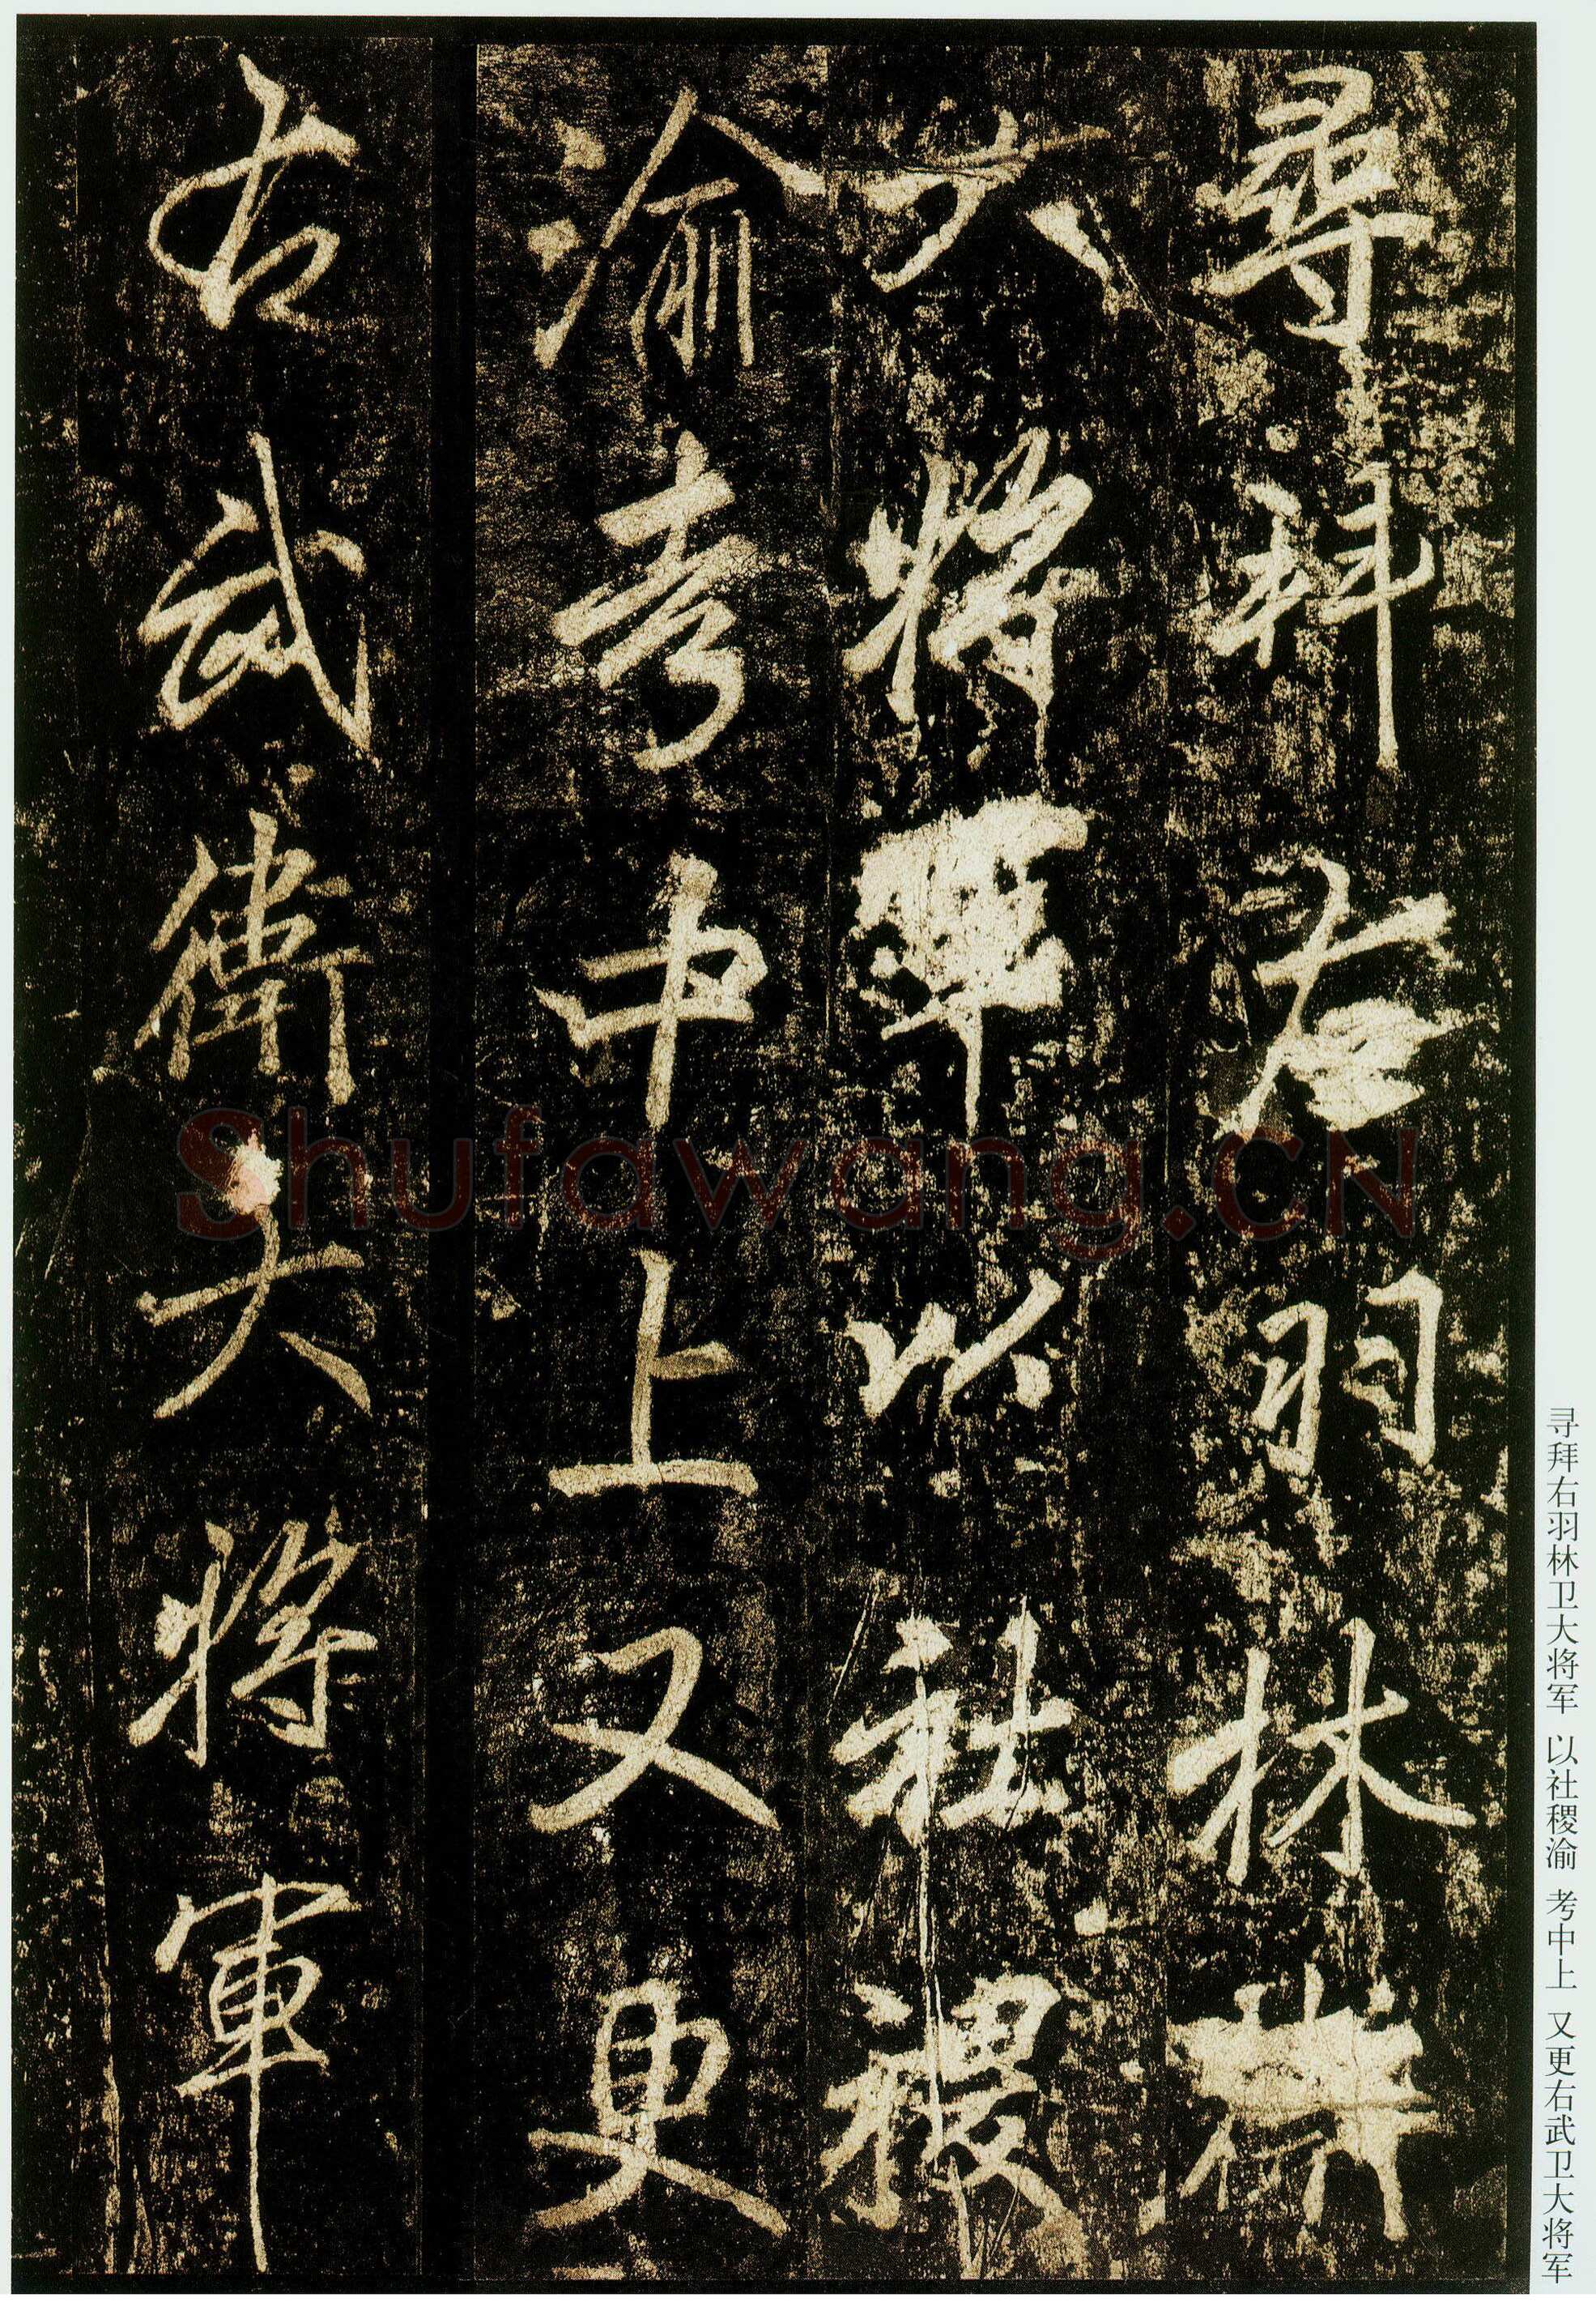 尋拜右羽林衛
大將軍以社稷
渝考中上又更
右武衛大將軍
寻拜右羽林卫大将军 以社稷渝 考中上 又更右武卫大将军
Shufawang.CN